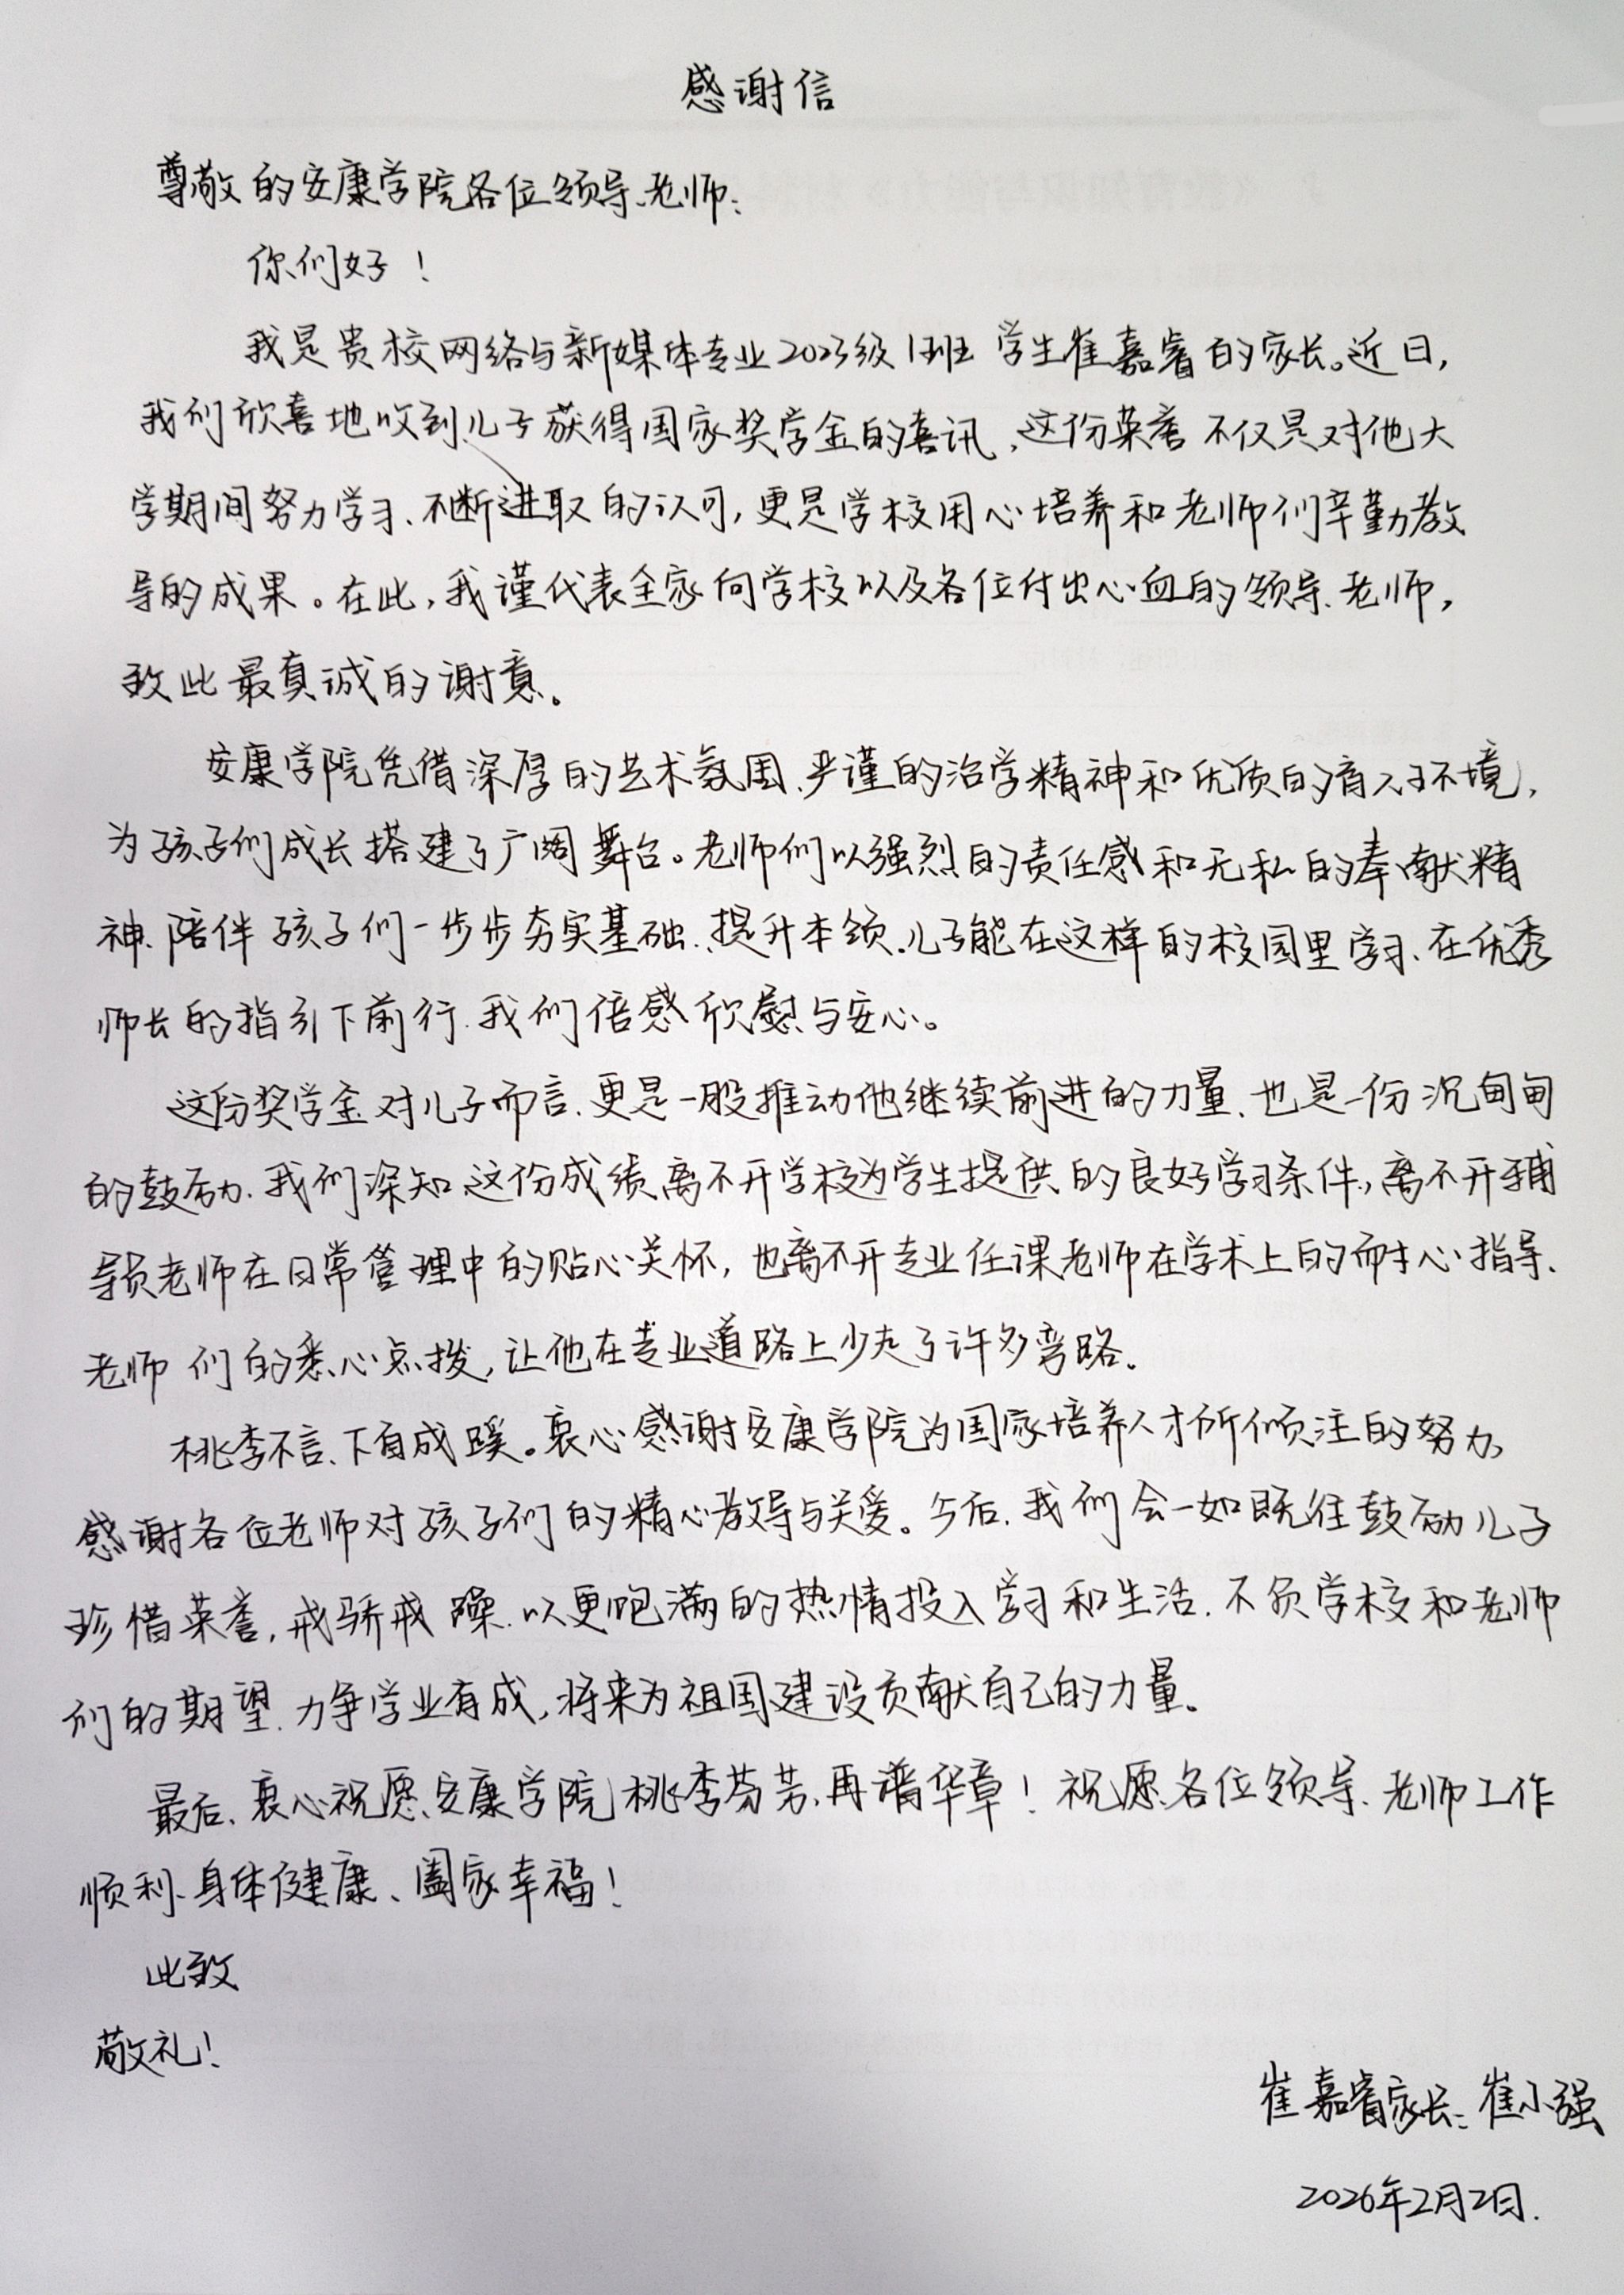 感谢信
尊敬的安康学院各位领导、老师:
你们好!
我是贵校网络与新媒体专业2023级1班 学生崔嘉睿的家长。近日,
我们欣喜地收到儿子获得国家奖学金的喜讯,这份荣誉不仅是对他大
学期间努力学习、不断进取的认可,更是学校用心培养和老师们辛勤教
导的成果。在此,我谨代表全家向学校以及各位付出心血的领导、老师,
致此最真诚的谢意。
安康学院凭借深厚的艺术氛围、严谨的治学精神和优质的育人环境,
为孩子们成长搭建了广阔舞台。老师们以强烈的责任感和无私的奉献精
神、陪伴孩子们一步步夯实基础、提升本领,儿子能在这样的校园里学习、在优秀
师长的指引下前行,我们倍感欣慰与安心。
这份奖学金对儿子而言,更是一股推动他继续前进的力量、也是一份沉甸甸
的鼓励,我们深知,这份成绩离不开学校为学生提供的良好学习条件,离不开辅
导员老师在日常管理中的贴心关怀,也离不开专业任课老师在学术上的耐心指导、
老师们的悉心点拨,让他在专业道路上少走了许多弯路。
桃李不言、下自成蹊。衷心感谢安康学院为国家培养人才所倾注的努力,
感谢各位老师对孩子们的精心教导与关爱。今后,我们会一如既往鼓励儿子
珍惜荣誉,戒骄戒躁,以更饱满的热情投入学习和生活,不负学校和老师
们的期望,力争学业有成,将来为祖国建设贡献自己的力量。
最后、衷心祝愿安康学院桃李芬芳、再谱华章!祝愿各位领导、老师工作
顺利、身体健康、阖家幸福!
此致
敬礼!
崔嘉睿家长:崔小强
2026年2月2日.